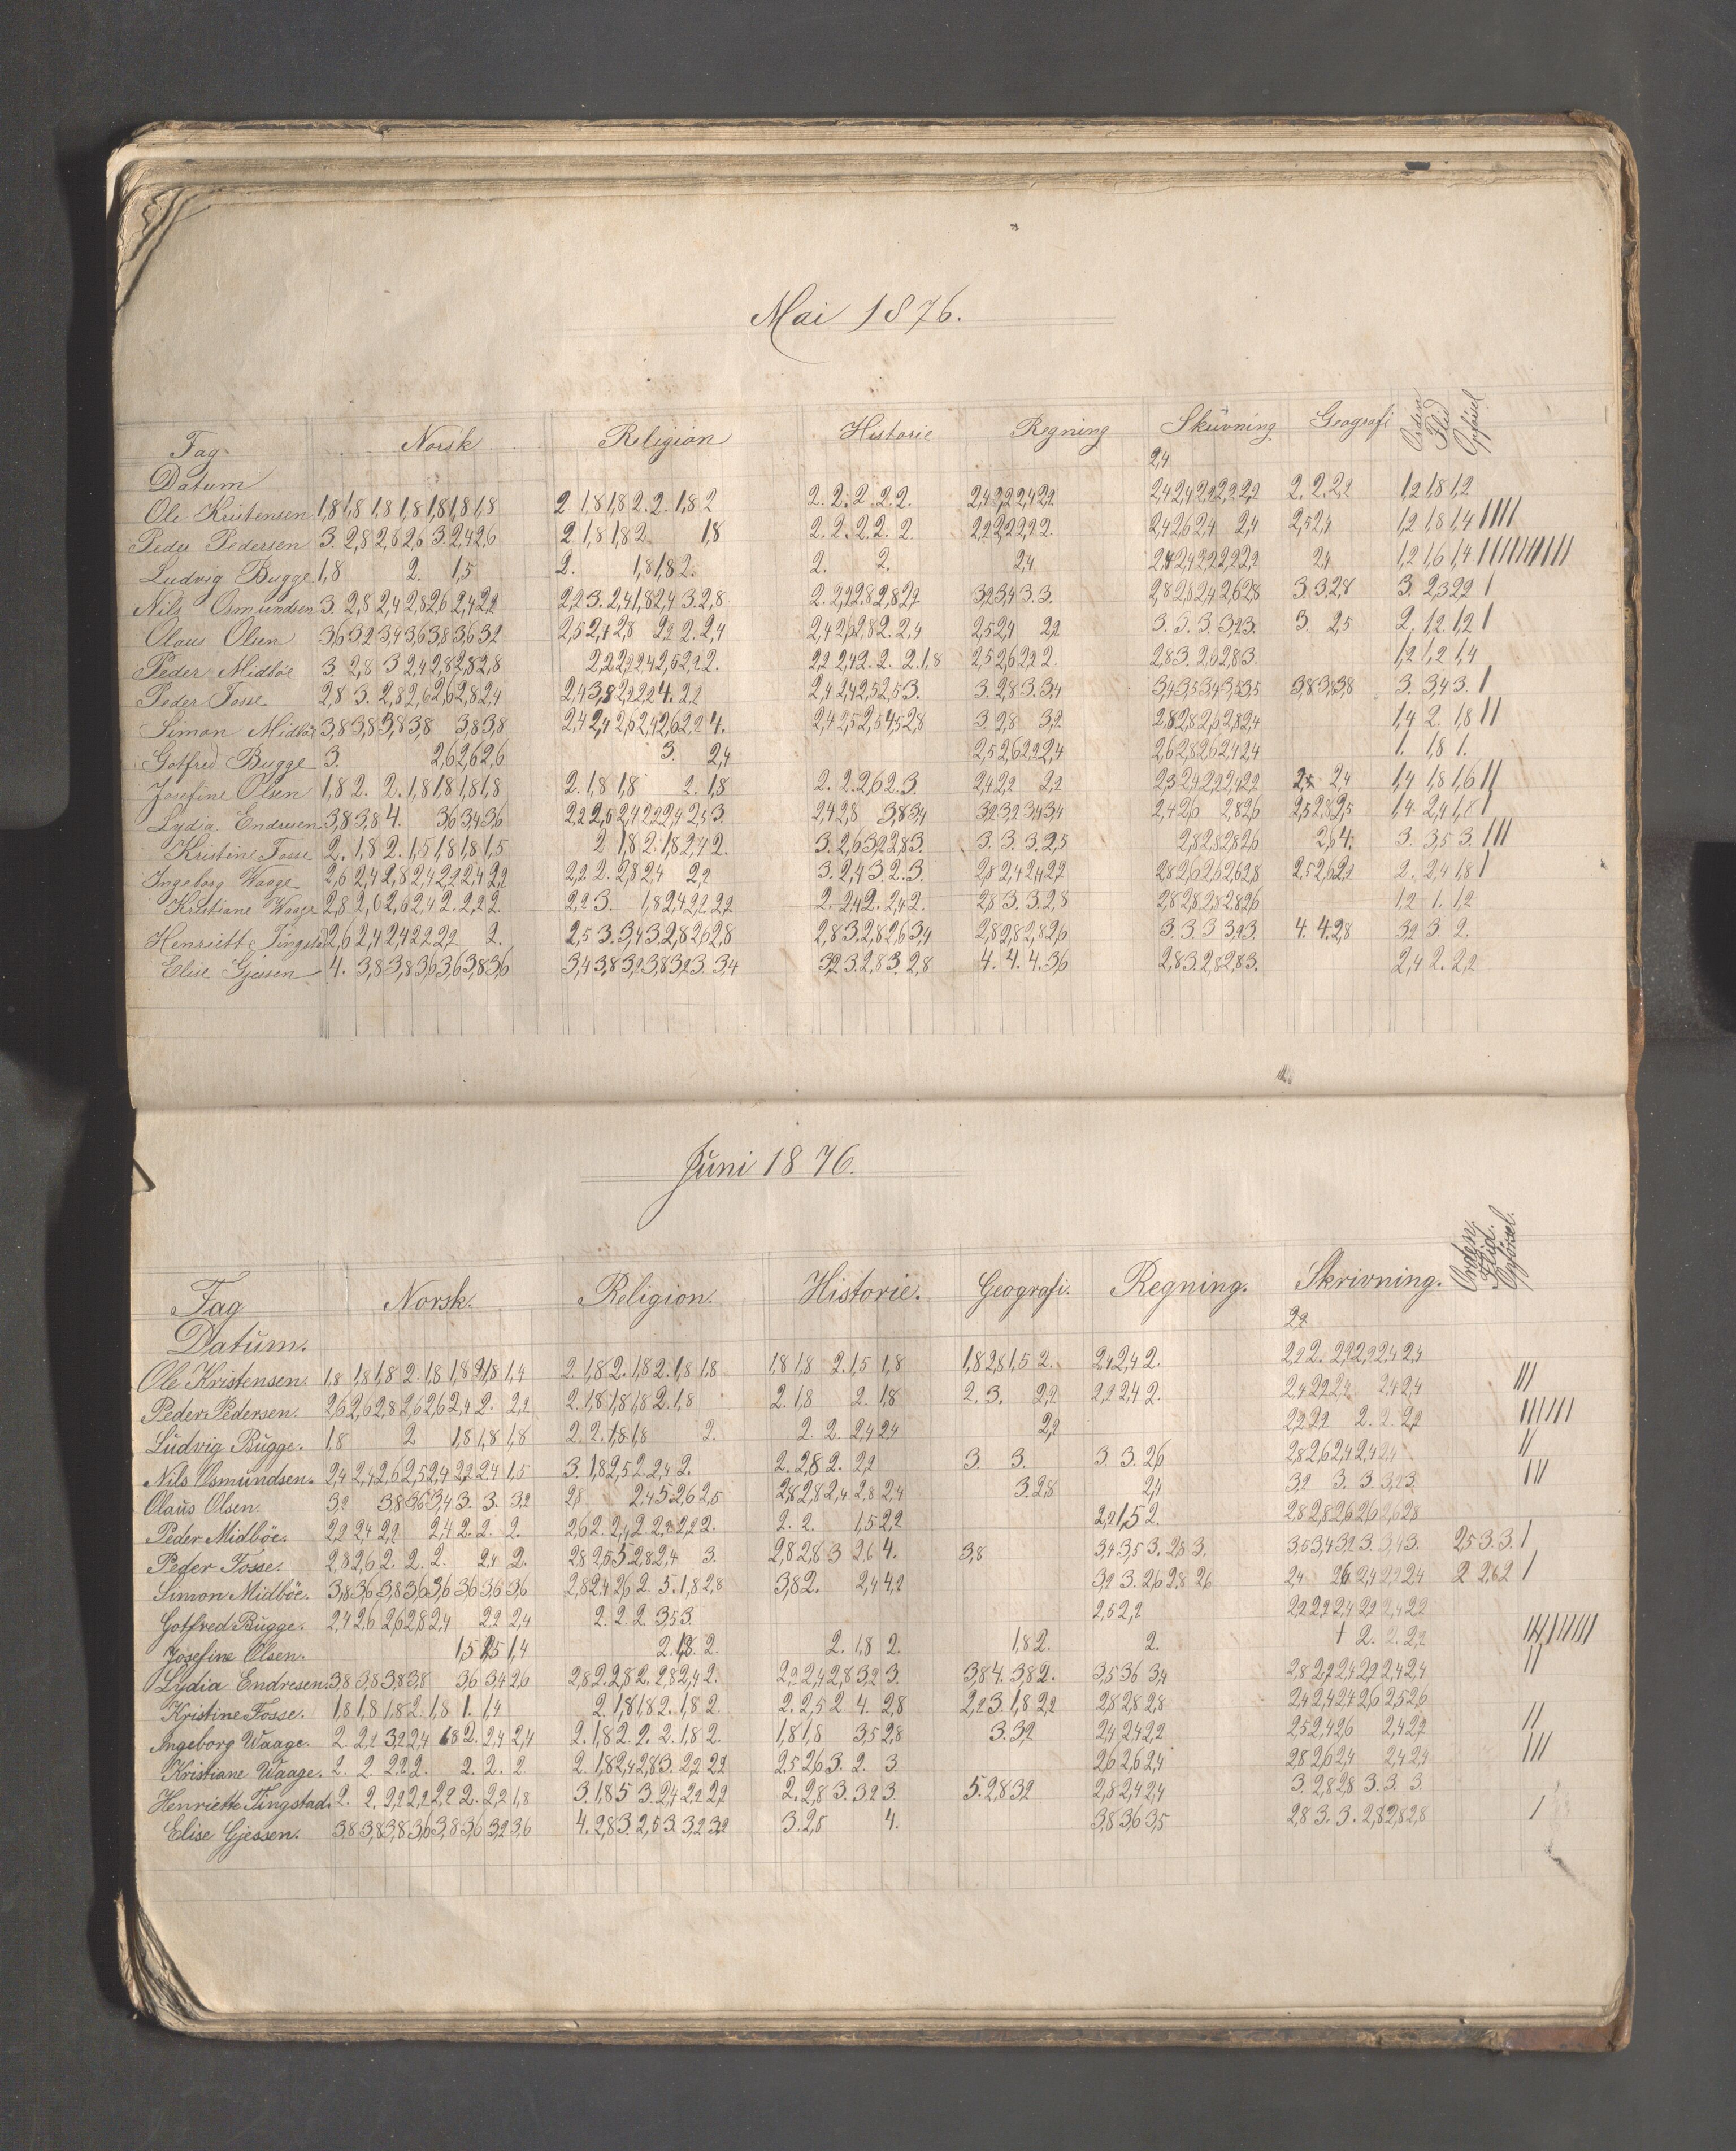 Mai 1876.
Fag Norsk Religion Historie Regning Skrivning Geografi Orden Flid Opförsel
Datum 2,4
Ole Kristensen 1,8 1,8 1,8 1,8 1,8 1,8 1,8 2. 1,8 1,8 2. 2. 1,8 2 2. 2. 2. 2. 2. 2,4 2,2 2,4 2,2 2,4 2,4 2,2 2,2 2,2 2. 2. 2,2 1,2 1,8 1,2
Peder Pedersen 3. 2,8 2,8 2,6 3. 2,4 2,6 2 1,8 1,8 2. 1,8 2. 2. 2. 2. 2. 2,2 2,2 2,2 2. 2,4 2,6 2,4 2,4 2,5 2,4 1,2 1,8 1,4 ||||
Ludvig Bugge 1,8 2. 1,5 2. 1,8 1,8 2. 2. 2. 2,4 2,4 2,4 2,2 2,2 2,2 2,4 1,2 1,6 1,4 |||||||||
Nils Osmundsen 3. 2,8 2,4 2,8 2,6 2,4 2,2 2,2 3. 2,4 1,8 2,4 3. 2,8 2. 2,2 2,8 2,8 2,2 3,2 3,4 3. 3. 2,8 2,8 2,4 2,6 2,8 3. 3. 2,8 3. 2,3 2,2 |
Olaus Olsen 3,6 3,2 3,4 3,6 3,8 3,6 3,2 2,5 2,4 2,8 2,2 2. 2,4 2,4 2,6 2,8 2. 2,4 2,5 2,4 2,2 3. 3. 3. 3,2 3. 3. 2,5 2. 1,2 1,2 |
Peder Midböe 3 2,8 3 2,4 2,8 2,8 2,8 2,2 2,2 2,4 2,6 2,2 2. 2,2 2,4 2. 2. 2. 1,8 2,5 2,6 2,2 2. 2,8 3. 2,6 2,8 3. 1,2 1,2 1,4
Peder Fosse 2,8 3. 2,8 2,6 2,6 2,8 2,4 2,4 3,8 2,2 2,2 4. 2,2 2,4 2,4 2,5 2,5 3. 3. 2,8 3. 3,4 3,4 3,5 3,4 3,5 3,5 3,8 3,8 3,8 3. 3,4 3. |
Simon Midböe 3,8 3,8 3,8 3,8 3,8 3,8 2,4 2,4 2,6 2,4 2,6 2,2 4. 2,4 2,5 2,5 4,5 2,8 3. 2,8 3,2 2,8 2,8 2,6 2,8 2,4 1,4 2. 1,8 ||
Gotfred Bugge 3. 2,6 2,6 2,6 3. 2,4 2,5 2,6 2,2 2,4 2,6 2,8 2,6 2,4 2,4 1. 1,8 1.
Josefine Olsen 1,8 2. 2. 1,8 1,8 1,8 1,8 2. 1,8 1,8 2. 1,8 2. 2. 2,6 2. 3. 2,4 2,2 2,2 2,3 2,4 2,2 2,4 2,2 2,4 1,4 1,8 1,6 ||
Lydia Endresen 3,8 3,8 4. 3,6 3,4 3,6 2,2 2,5 2,4 2,2 2,4 2,5 3. 2,4 2,8 3,8 3,4 3,2 3,2 3,4 3,4 2,4 2,6 2,8 2,6 2,5 2,8 2,5 1,4 2,4 1,8 |
Kristine Fosse 2. 1,8 2. 1,5 1,8 1,8 1,5 2 1,8 2. 1,8 2,4 2. 3. 2,6 3,2 2,8 3. 3. 3. 3. 2,5 2,8 2,8 2,8 2,6 2,6 4. 3. 3,5 3. |||
Ingeborg Waage 2,6 2,4 2,8 2,4 2,2 2,4 2,2 2,2 2. 2,8 2,4 2,2 3. 2,4 3. 2. 3. 2,8 2,4 2,4 2,2 2,8 2,6 2,6 2,6 2,8 2,5 2,6 2,2 2. 2,4 1,8 |
Kristiane Waage 2,8 2,0 2,6 2,4 2. 2,2 2. 2,2 3. 1,8 2,4 2,2 2,2 2. 2,4 2. 2,4 2. 2,8 3. 3. 2,8 2,8 2,8 2,8 2,8 2,6 1,2 1. 1,2
Henriette Tingstad 2,6 2,4 2,4 2,2 2,2 2. 2,5 3. 3,4 3. 2,8 2,6 2,8 2,8 3. 2,8 2,6 3,4 2,8 2,8 2,8 2,6 3. 3. 3 3,2 3. 4. 4. 2,8 3,2 3 2.
Elise Gjessen 4. 3,8 3,8 3,6 3,6 3,8 3,6 3,4 3,8 3,2 3,8 3,2 3. 3,4 3,2 3. 2,8 3. 2,8 4. 4. 4. 3,6 2,8 3. 2,8 2,8 3. 2,4 2. 2,2
Juni 1876.
Fag Norsk. Religion. Historie. Geografi. Regning. Skrivning. Orden. Flid. Opförsel.
Datum. 2,2
Ole Kristensen. 1,8 1,8 1,8 2. 1,8 1,8 1,8 1,4 2. 1,8 2. 1,8 2. 1,8 1,8 1,8 1,8 2. 1,5 1,8 1,8 2,8 1,5 2. 2,4 2,4 2. 2,2 2. 2,2 2,2 2,4 2,4
Peder Pedersen. 2,6 2,6 2,8 2,6 2,6 2,4 2. 2,2 2. 1,8 1,8 1,8 2. 1,8 2. 1,8 2. 1,8 2. 3. 2,2 2,2 2,4 2. 2,4 2,2 2,4 2,4 2,4 |||
Ludvig Bugge. 1,8 2 1,8 1,8 1,8 2. 2. 1,8 1,8 2. 2. 2. 2,4 2,4 2,2 2,2 2,2 2. 2. 2,2 ||||||
Nils Osmundsen. 2,4 2,4 2,6 2,5 2,4 2,2 2,4 1,5 3. 1,8 2,5 2. 2,4 2. 2. 2,8 2. 2,2 3. 3. 3. 3. 2,6 2,8 2,6 2,4 2,4 2,4 ||
Olaus Olsen. 3,2 3,8 3,6 3,4 3. 3. 3,2 2,8 2,4 5. 2,6 2,5 2,8 2,8 2,4 2,8 2,4 3. 2,8 2,4 3,2 3. 3. 3,2 3. |||
Peder Midböe. 2,2 2,4 2,2 2,4 2. 2. 2. 2,6 2. 2,4 2. 2,4 2,2 2. 2. 2. 1,5 2,2 2,2 1,5 2. 2,8 2,8 2,6 2,6 2,6 2,8
Peder Fosse. 2,8 2,6 2. 2. 2. 2,4 2. 2,8 2,5 5 2,8 2,4 3. 2,8 2,8 3 2,6 4. 3,8 3,4 3,5 3. 2,8 3. 3,5 3,4 3,2 3. 3,4 3. 2,5 3. 3. |
Simon Midböe. 3,8 3,6 3,8 3,6 3,6 3,6 3,6 3,6 2,8 2,4 2,6 2. 5. 1,8 2,8 3,8 2. 2,4 4,2 3,2 3. 2,6 2,8 2,6 2,4 2,6 2,4 2,2 2,4 2 2,6 2 |
Gotfred Bugge. 2,4 2,6 2,6 2,8 2,4 2,2 2,4 2. 2. 2 3,5 3. 2,5 2,2 2,2 2,2 2,4 2,2 2,4 2,2
Josefine Olsen. 1,5 1,5 1,4 2. 1,8 2. 2. 1,8 2. 1,8 2. 2. † 2. 2. 2,2 ||||||||
Lydia Endresen. 3,8 3,8 3,8 3,8 3,6 3,4 2,6 2,8 2. 2,8 2. 2,8 2,4 2. 2,2 2,4 2,8 3,2 3. 3,8 4. 3,8 2. 3,5 3,6 3,4 2,8 2,2 2,4 2,2 2,4 2,4 ||
Kristine Fosse. 1,8 1,8 1,8 2. 1,8 1. 1,4 2. 1,8 1,8 2. 1,8 2. 2. 2,5 2 4. 2,8 2,2 3. 1,8 2,2 2,8 2,8 2,8 2,4 2,4 2,4 2,6 2,5 2,6
Ingeborg Waage. 2. 2,2 3,2 2,4 1,8 2. 2,4 2,4 2. 1,8 2. 2. 2. 1,8 2. 1,8 1,8 3,5 2,8 3. 3,2 2,4 2,4 2,2 2,5 2,4 2,6 2,4 2,2 ||
Kristiane Waage. 2. 2. 2,2 2. 2. 2. 2 2. 1,8 2,4 2,8 3. 2,2 2,2 2,5 2,6 3. 2. 3 2,6 2,6 2,4 2,8 2,6 2,4 2,4 2,4 |||
Henriette Tingstad. 2. 2. 2,2 2,2 2,2 2. 2,2 1,8 3. 1,8 5 3. 2,4 2,2 2,2 2. 2,8 3. 3,2 3. 5. 2,8 3,2 2,8 2,4 2,4 3. 2,8 2,8 3. 3. 3
Elise Gjessen. 3,8 3,8 3,8 3,6 3,8 3,6 3,2 3,6 4. 2,8 3. 2,5 3. 3,2 3,2 3. 2,5 4. 3,8 3,6 3,5 2,8 3. 3. 2,8 2,8 2,8 |